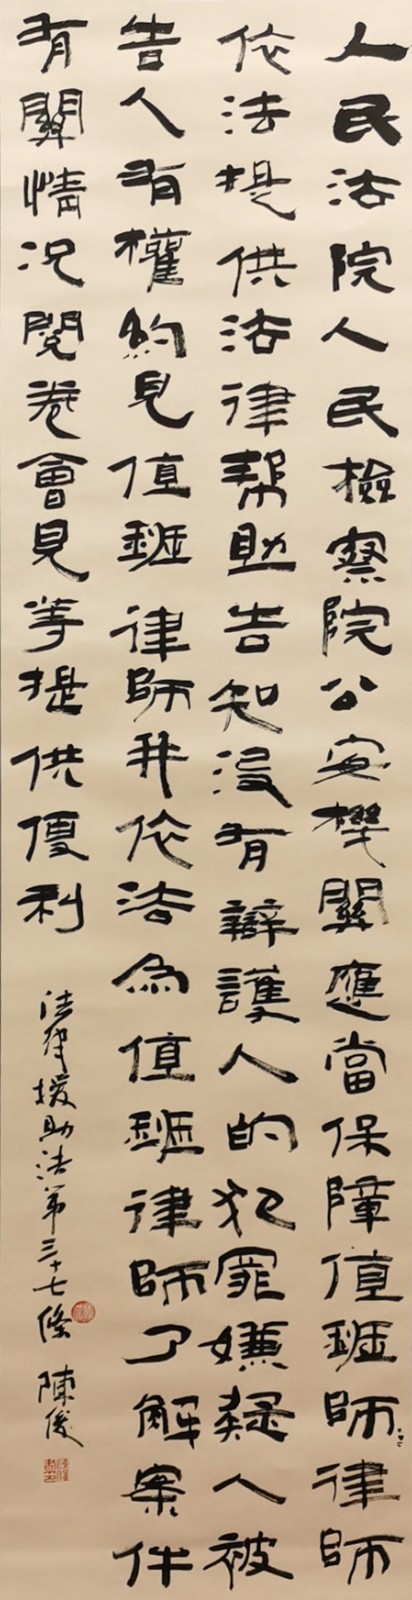 人民法院人民檢察院公安機關應當保障值班師律師
依法提供法律幫助告知沒有辯護人的犯罪嫌疑人被
告人有權約見值班律師并依法為值班律師了解案件
有關情況閱卷會見等提供便利
法律援助法第三十七條 陳俊